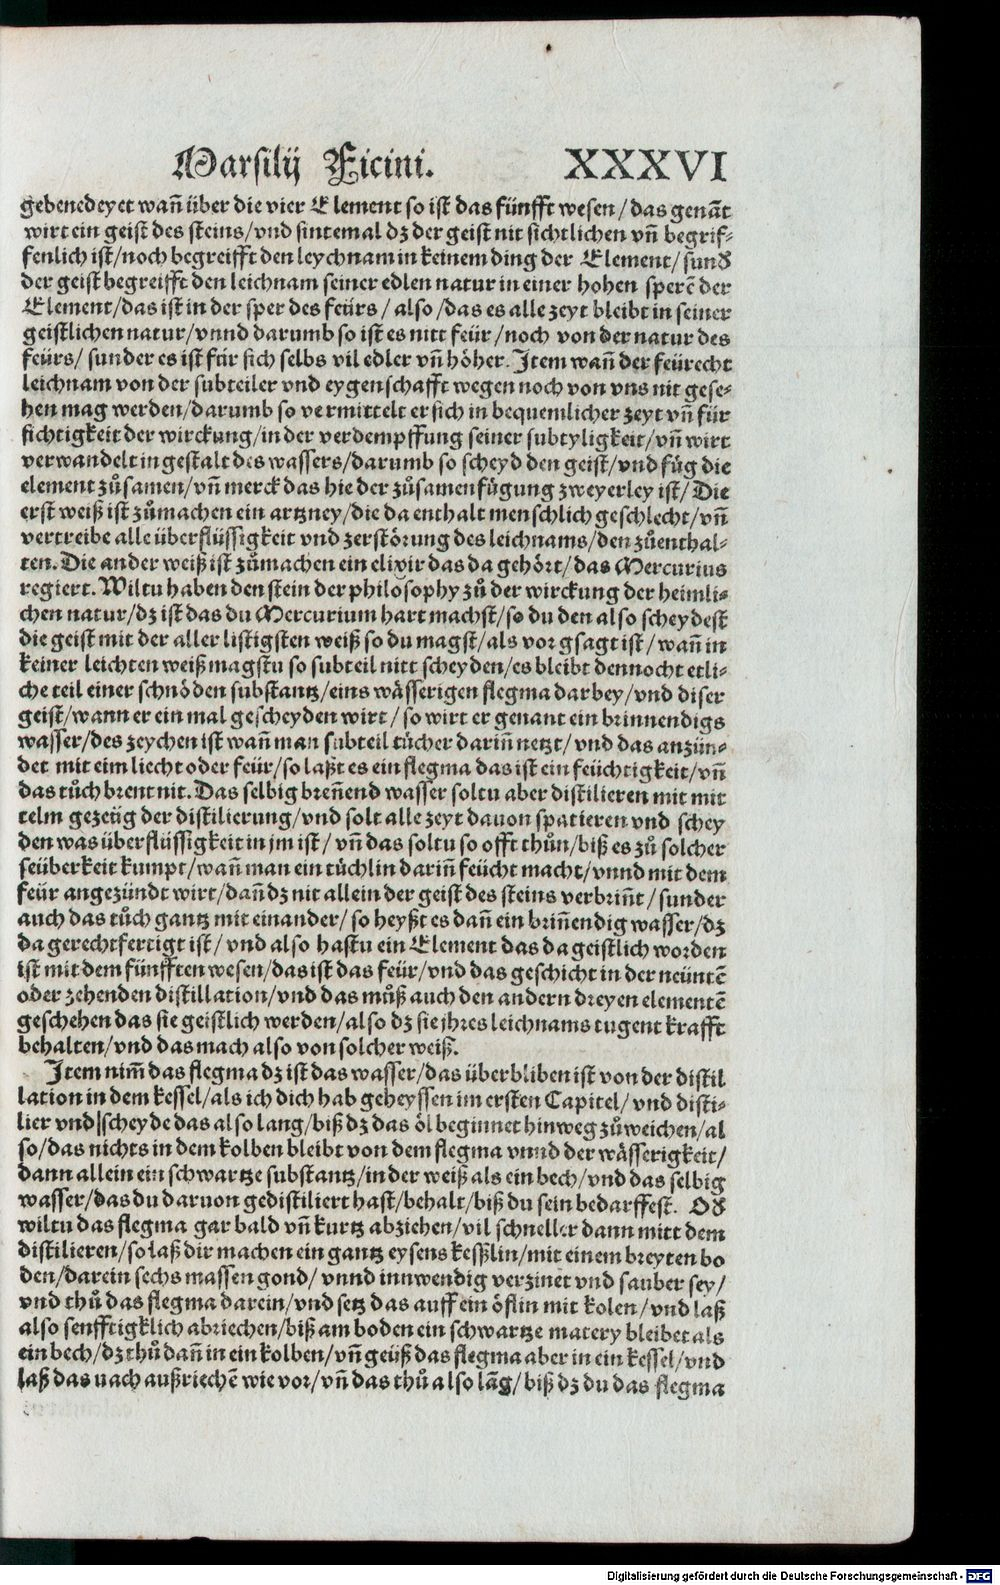 Marsilij Ficini. XXXVI
gebenedeyet wañ über die vier Element so ist das fünfft wesen / das genāt
wirt ein geist des steins / vnd sintemal dz der geist nit sichtlichen vñ begrif-
fenlich ist / noch begreifft den leychnam in keinem ding der Element / sund
der geist begreifft den leichnam seiner edlen natur in einer hohen sperē der
Element / das ist in der sper des feürs / also / das es alle zeyt bleibt in seiner
geistlichen natur / vnnd darumb so ist es nitt feür / noch von der natur des
feürs / sunder es ist für sich selbs vil edler vñ höher. Item wañ der feürecht
leichnam von der subteiler vnd eygenschafft wegen noch von vns nit gese-
hen mag werden / darumb so vermittelt er sich in bequemlicher zeyt vñ für
sichtigkeit der wirckung / in der verdempffung seiner subtyligkeit / vñ wirt
verwandelt in gestalt des wassers / darumb so scheyd den geist / vnd füg die
element zůsamen / vñ merck das hie der zůsamenfügung zweyerley ist / Die
erst weiß ist zůmachen ein artzney / die da enthalt menschlich geschlecht / vñ
vertreibe alle überflüssigkeit vnd zerstörung des leichnams / den zůenthal-
ten. Die ander weiß ist zůmachen ein elixir das da gehört / das Mercurius
regiert. Wiltu haben den stein der philosophy zů der wirckung der heimli-
chen natur / dz ist das du Mercurium hart machst / so du den also scheydest
die geist mit der aller listigsten weiß so du magst / als vorgsagt ist / wañ in
keiner leichten weiß magstu so subteil nitt scheyden / es bleibt dennocht etli-
che teil einer schnöden substantz / eins wässerigen flegma darbey / vnd diser
geist / wann er ein mal gescheyden wirt / so wirt er genant ein brinnendigs
wasser / des zeychen ist wañ man subteil tücher dariñ netzt / vnd das anzün-
det mit eim liecht oder feür / so laßt es ein flegma das ist ein feüchtigkeit / vñ
das tůch brent nit. Das selbig breñend wasser soltu aber distilieren mit mit
telm gezeüg der distilierung / vnd solt alle zeyt dauon spatieren vnd schey
den was überflüssigkeit in jm ist / vñ das soltu so offt thůn / biß es zů solcher
seüberkeit kumpt / wañ man ein tüchlin dariñ feücht macht / vnnd mit dem
feür angezündt wirt / dañ dz nit allein der geist des steins verbriñt / sunder
auch das tůch gantz mit einander / so heyßt es dañ ein briñendig wasser / dz
da gerechtfertigt ist / vnd also hastu ein Element das da geistlich worden
ist mit dem fünfften wesen / das ist das feür / vnd das geschicht in der neüntē
oder zehenden distillation / vnd das můß auch den andern dreyen elementē
geschehen das sie geistlich werden / also dz sie jhres leichnams tugent krafft
behalten / vnd das mach also von solcher weiß.
Item nim̄ das flegma dz ist das wasser / das überbliben ist von der distil
lation in dem kessel / als ich dich hab geheyssen im ersten Capitel / vnd disti-
lier vnd scheyde das also lang / biß dz das öl beginnet hinweg zůweichen / al
so / das nichts in dem kolben bleibt von dem flegma vnnd der wässerigkeit /
dann allein ein schwartze substantz / in der weiß als ein bech / vnd das selbig
wasser / das du daruon gedistiliert hast / behalt / biß du sein bedarffest. Od
wiltu das flegma gar bald vñ kurtz abziehen / vil schneller dann mitt dem
distilieren / so laß dir machen ein gantz eysens kesßlin / mit einem breyten bo
den / darein sechs massen gond / vnnd innwendig verzinet vnd sauber sey /
vnd thů das flegma darein / vnd setz das auff ein öflin mit kolen / vnd laß
also senfftigklich abriechen / biß am boden ein schwartze matery bleibet als
ein bech / dz thů dañ in ein kolben / vñ geüß das flegma aber in ein kessel / vnd
laß das nach außriechē wie vor / vñ das thů also lāg / biß dz du das flegma
Digitalisierung gefördert durch die Deutsche Forschungsgemeinschaft - DFG